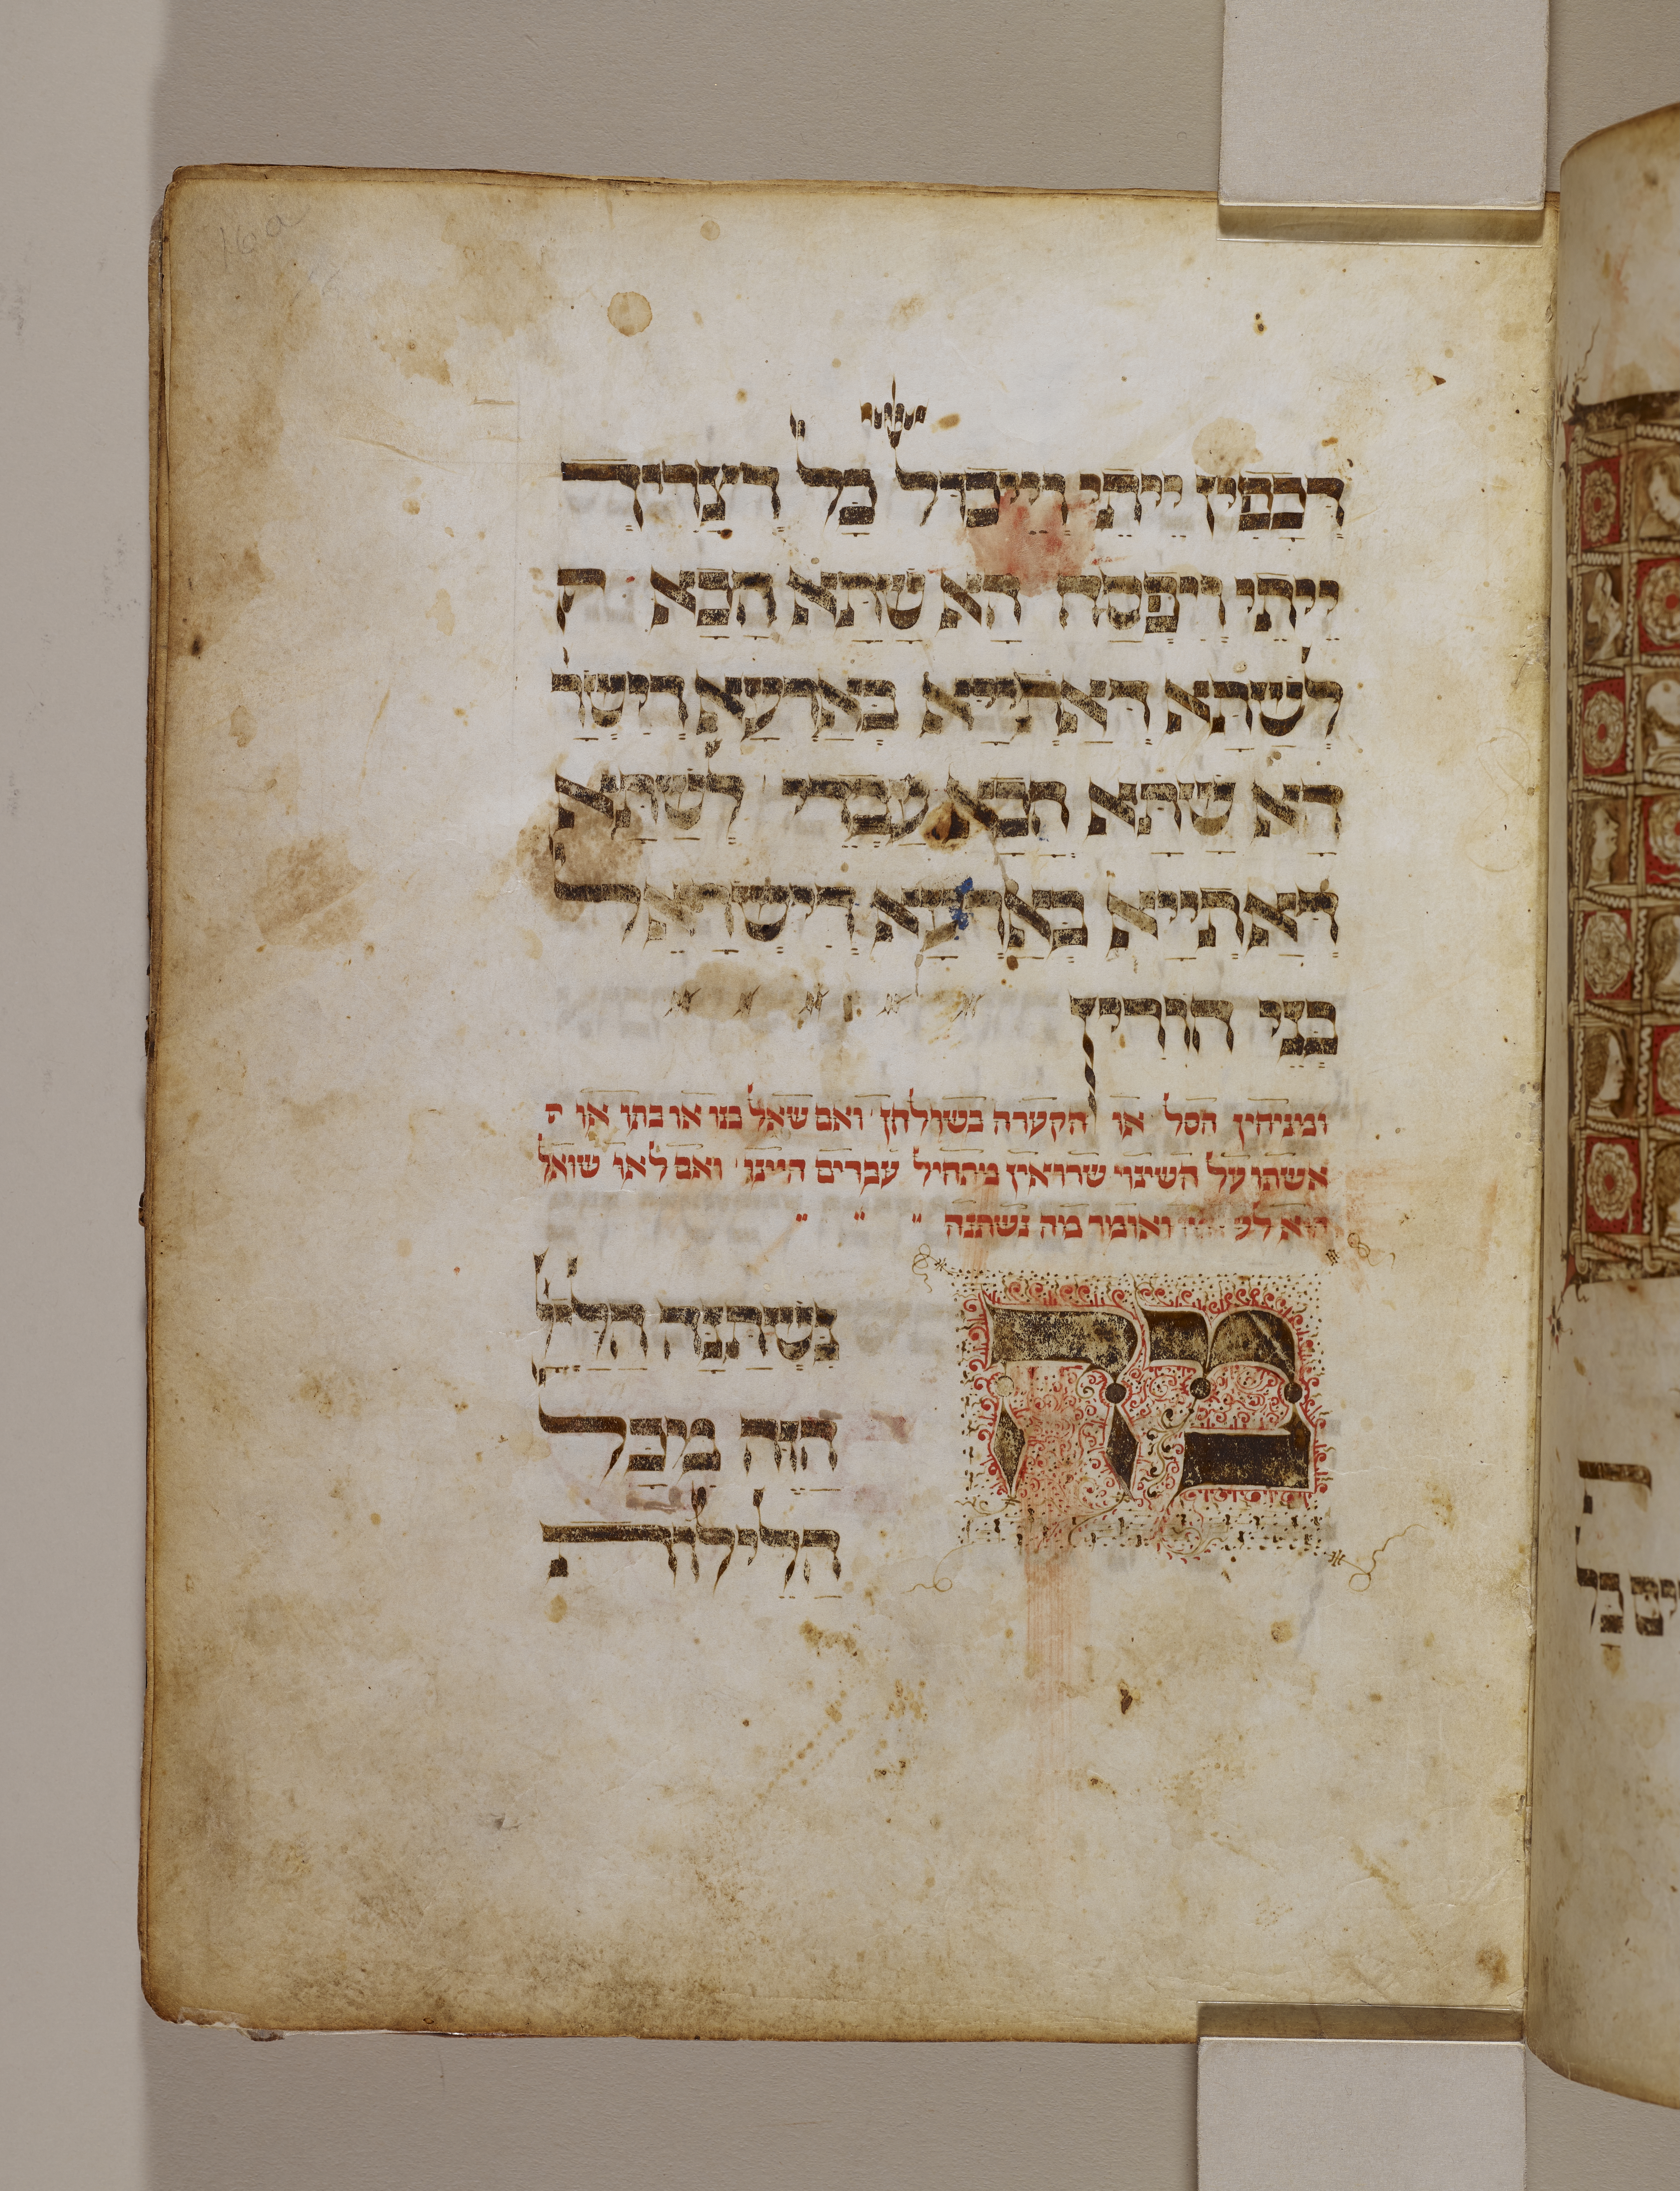 16a
דְכָפִין יֵיתֵי וְיֵיכוֹל כָּל דְצָרִיךְ
יֵיתֵי וְיִפְסַח הָא שַׁתָּא הָכָא ק
לְשַׁתָּא דְאָתְיָיא בְּאַרְעָא דְיִשְׂרָ
הָא שַׁתָּא הָכָא עַבְדֵי לְשַׁתָּא
דְאָתְיָיא בְּאַרְעָא דְיִשְׂרָאֵל
בְּנֵי חוֹרִין
ומניחין הסל או הקערה בשולחן ואם שאל בנו או בתו או
אשתו על השינוי שרואין מתחיל עבדים היינו ואם לאו שואל
הוא ואומר מה נשתנה
מה
נִּשְׁתַּנָּה הַלַּיְ
הַזֶּה מִכָּל
הַלֵּילוֹת